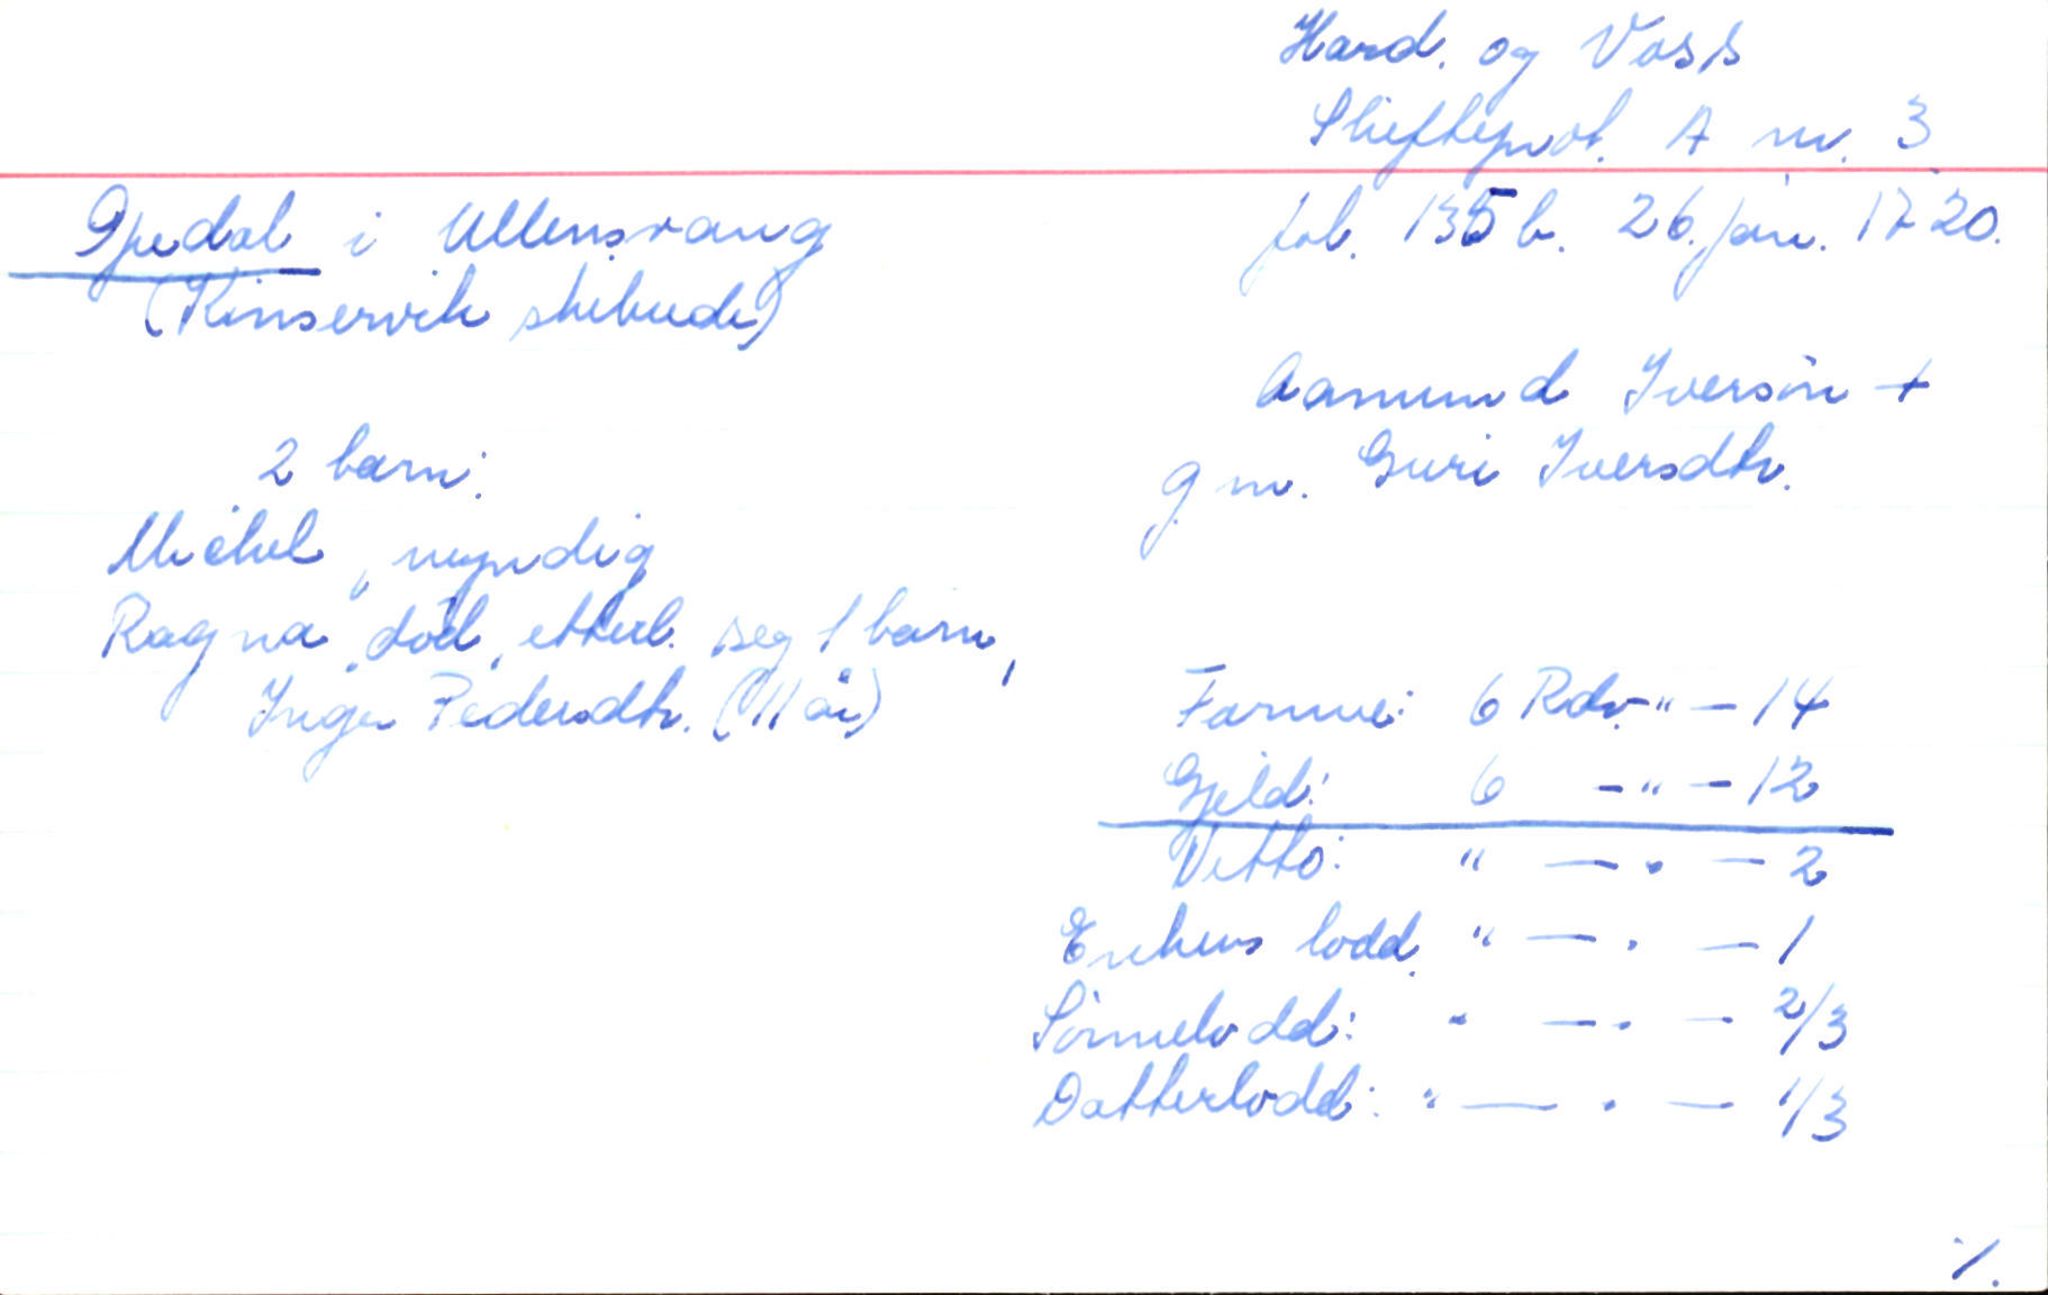 Hard. og Voss
Skifteprot. A nr. 3
fol. 135 b. 26. jan. 1720.
Opedal i Ullensvang
(Kinservik skibrede)
Aamund Iversøn +
g m. Guri Iversdtr.
2 barn:
Michel, myndig
Ragna, død, etterl. seg 1 barn,
Inger Pedersdtr. (11 år)
Formue: 6 Rdr. - " - 14
Gjeld: 6 - " - 12
Netto: " - " - 2
Enkens lodd " - " - 1
Sønnelodd: " - " - 2/3
Datterlodd: " - " - 1/3
./.